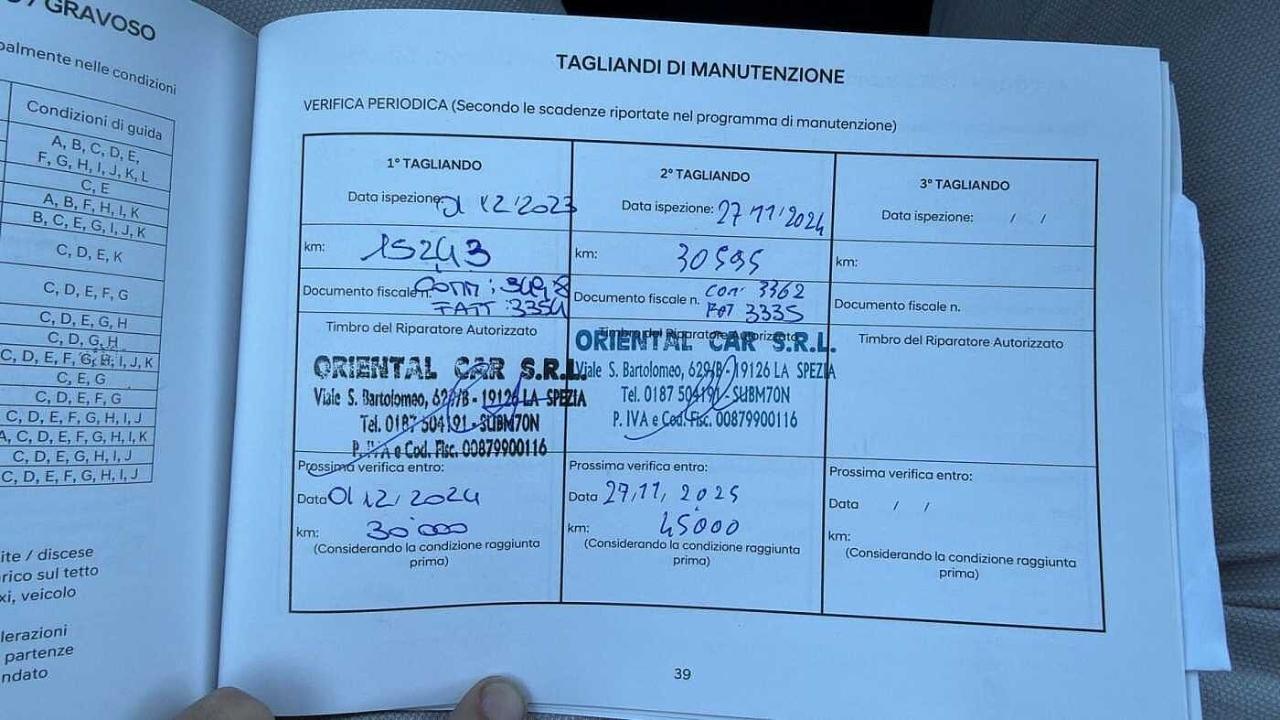 O / GRAVOSO
palmente nelle condizioni
Condizioni di guida
A, B, C, D, E,
F, G, H, I, J, K, L
C, E
A, B, F, H, I, K
B, C, E, G, I, J, K
C, D, E, K
C, D, E, F, G
C, D, E, G, H
C, D, G, H
C, D, E, F, G, H, I, J, K
C, E, G
C, D, E, F, G
C, D, E, F, G, H, I, J
A, C, D, E, F, G, H, I, K
C, D, E, G, H, I, J
C, D, E, F, G, H, I, J
ite / discese
rico sul tetto
xi, veicolo
lerazioni
partenze
ndato
TAGLIANDI DI MANUTENZIONE
VERIFICA PERIODICA (Secondo le scadenze riportate nel programma di manutenzione)
1° TAGLIANDO
Data ispezione: 01 12/2023
km: 15243
Documento fiscale n.
FATT: 3354
Timbro del Riparatore Autorizzato
ORIENTAL CAR S.R.L.
Viale S. Bartolomeo, 629/B - 19126 LA SPEZIA
Tel. 0187 504191 - SUBM70N
P. IVA e Cod. Fisc. 00879900116
Prossima verifica entro:
Data 01 12/2024
km: 30'000
(Considerando la condizione raggiunta
prima)
2° TAGLIANDO
Data ispezione: 27/11/2024
km: 30595
Documento fiscale n. con: 3362
FAT 3335
Timbro del Riparatore Autorizzato
ORIENTAL CAR S.R.L.
Viale S. Bartolomeo, 629/B - 19126 LA SPEZIA
Tel. 0187 504191 - SUBM70N
P. IVA e Cod. Fisc. 00879900116
Prossima verifica entro:
Data 27/11/2025
km: 45'000
(Considerando la condizione raggiunta
prima)
3° TAGLIANDO
Data ispezione: / /
km:
Documento fiscale n.
Timbro del Riparatore Autorizzato
Prossima verifica entro:
Data / /
km:
(Considerando la condizione raggiunta
prima)
39